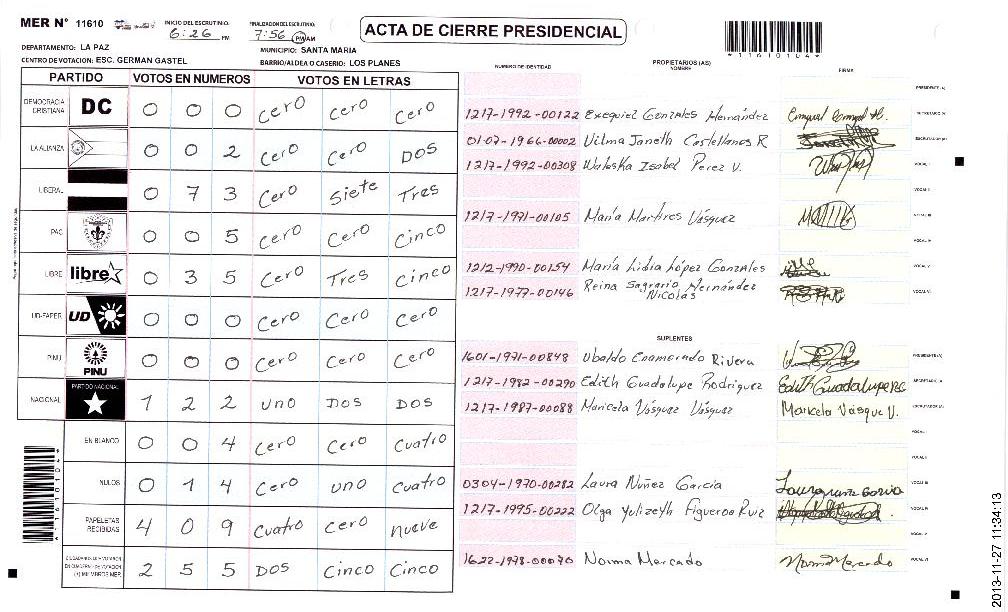 MER N° 11610
INICIO DEL ESCRUTINIO: 6:26 PM
FINALIZACION DEL ESCRUTINIO: 7:56 PM AM
ACTA DE CIERRE PRESIDENCIAL
*11610104*
DEPARTAMENTO: LA PAZ
MUNICIPIO: SANTA MARIA
CENTRO DE VOTACION: ESC. GERMAN GASTEL
BARRIO/ALDEA O CASERIO: LOS PLANES
PARTIDO VOTOS EN NUMEROS VOTOS EN LETRAS
DEMOCRACIA CRISTIANA DC 0 0 0 cero cero cero
LA ALIANZA 0 0 2 cero cero DOS
LIBERAL 0 7 3 cero siete Tres
PAC 0 0 5 cero cero cinco
LIBRE libre 0 3 5 cero Tres cinco
UD-FAPER UD 0 0 0 cero cero cero
PINU PINU 0 0 0 cero cero cero
NACIONAL PARTIDO NACIONAL 1 2 2 uno DOS DOS
EN BLANCO 0 0 4 cero cero cuatro
NULOS 0 1 4 cero uno cuatro
PAPELETAS RECIBIDAS 4 0 9 cuatro cero nueve
(+) MIEMBROS MER. 2 5 5 DOS cinco cinco
*11610104*
NUMERO DE IDENTIDAD
PROPIETARIOS (AS)
NOMBRE
FIRMA
PRESIDENTE (A)
1217-1992-00122 Exequiel Gonzales Hernández SECRETARIO (A)
01-07-1966-00002 Vilma Janeth Castellanos R ESCRUTADOR (A)
1217-1992-00308 Waleska Isabel Perez V. VOCAL I
VOCAL II
1217-1971-00105 María Martires Vásquez VOCAL III
VOCAL IV
1212-1990-00154 María Lidia López Gonzales VOCAL V
1217-1977-00146 Reina Sagrario Hernández Nicolas VOCAL VI
SUPLENTES
1601-1971-00848 Ubaldo Enamorado Rivera PRESIDENTE (A)
1217-1982-00290 Edith Guadalupe Rodriguez SECRETARIO (A)
1217-1987-00088 Maricela Vásquez Vásquez Maricela Vásque V. ESCRUTADOR (A)
VOCAL I
VOCAL II
0304-1970-00282 Laura Nuñez Garcia VOCAL III
1217-1995-00222 Olga Yulizeth Figueroa Ruiz VOCAL IV
VOCAL V
1622-1978-00070 Norma Mercado Norma Mercado VOCAL VI
2013-11-27 11:34:13